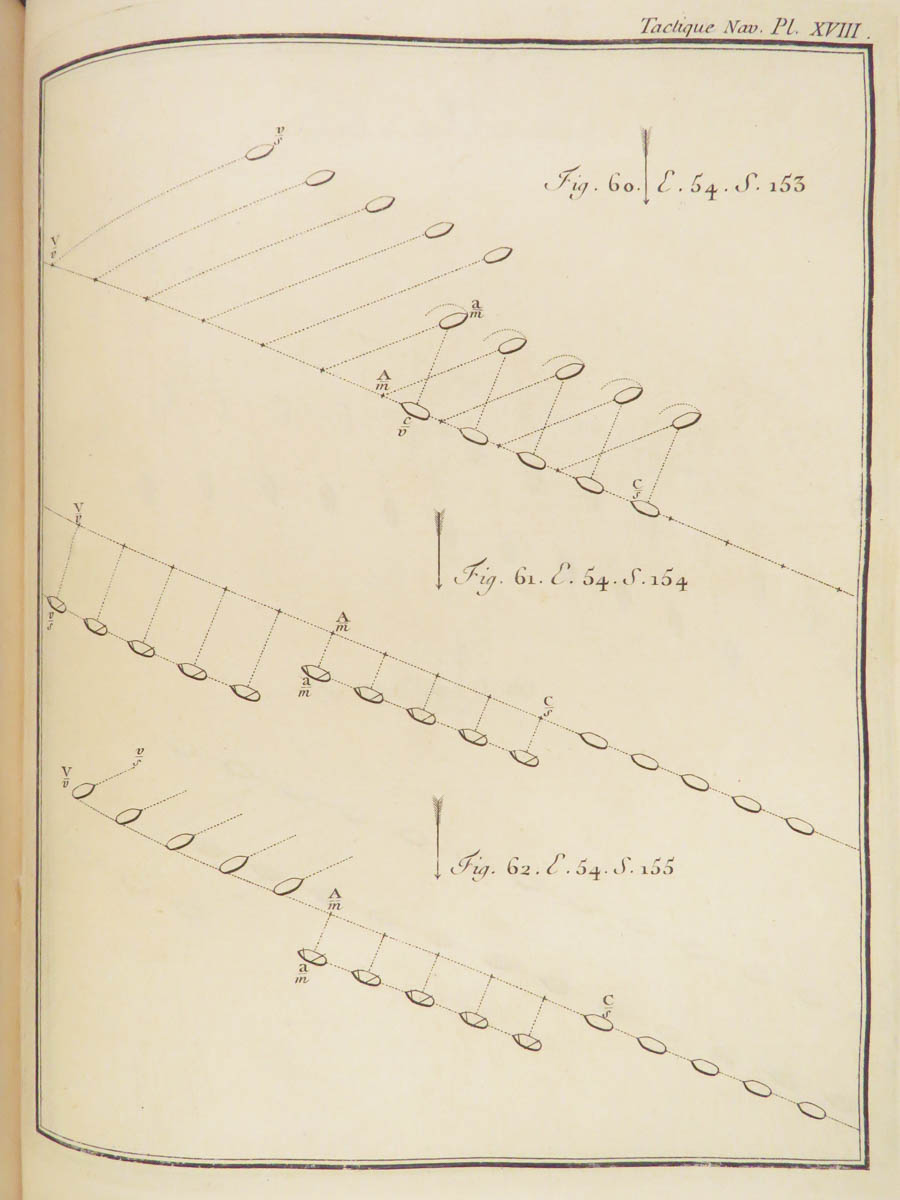 Tactique Nav. Pl. XVIII.
v
s
Fig. 60. E. 54. S. 153
V
v
a
m
A
m
c
v
C
s
V
v
Fig. 61. E. 54. S. 154
v
s
A
m
a
m
C
s
v
s
V
v
Fig. 62. E. 54. S. 155
A
m
a
m
C
s